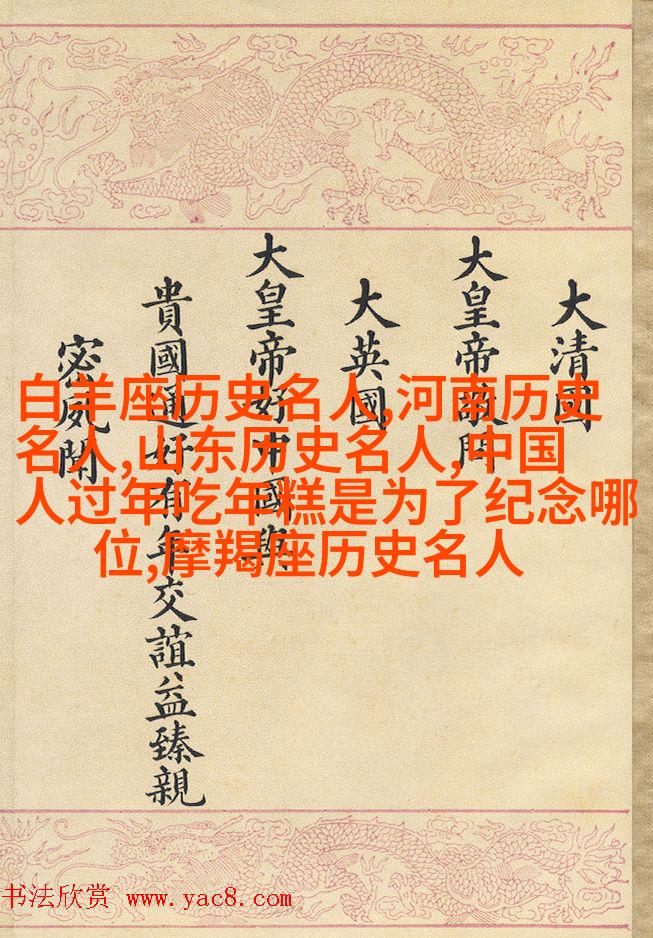 大清國
大皇帝敬問
大英國
大皇帝好中國與
貴國通好有年交誼益臻親
密夙聞
白羊座历史名人,河南历史
名人,山东历史名人,中国
人过年吃年糕是为了纪念哪
位,摩羯座历史名人
书法欣赏 www.yac8.com